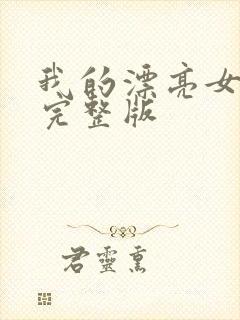 我的漂亮女
完整版
君灵熏